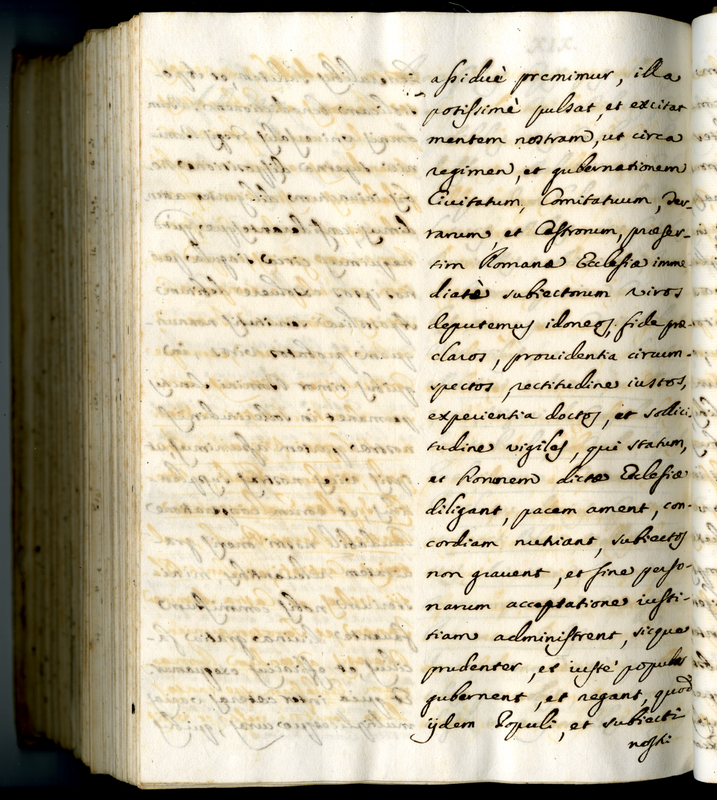 assiduè premimur, illa
potissimè pulsat, et excitat
mentem nostram, ut circa
regimen, et gubernationem
Civitatum, Comitatuum, Ter-
rarum, et Castrorum, præser-
tim Romanæ Ecclesiæ imme
diatè subiectorum viros
deputemus idoneos, fide præ
claros, prouidentia circum-
spectos, rectitudine iustos,
experientia doctos, et sollici
tudine vigiles, qui statum,
et honorem dictæ Ecclesiæ
diligant, pacem ament, con-
cordiam nutriant, subiectos
non grauent, et sine perso-
narum acceptatione iusti-
tiam administrent, sicque
prudenter, et iustè populos
gubernent, et regant, quod
ijdem Populi, et subiecti
nostri